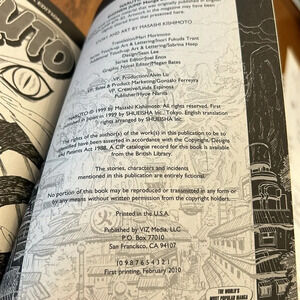 EDITION
UTO
NARUTO
STORY AND ART BY MASASHI KISHIMOTO
Translation/Mari Morimoto
Touch-up Art & Lettering/Inori Fukuda Trant
Additional Touch-up Art & Lettering/Sabrina Heep
Design/Sean Lee
Series Editor/Joel Enos
Graphic Novel Editor/Megan Bates
VP, Production/Alvin Lu
VP, Sales & Product Marketing/Gonzalo Ferreyra
VP, Creative/Linda Espinosa
Publisher/Hyoe Narita
NARUTO © 1999 by Masashi Kishimoto. All rights reserved. First
published in Japan in 1999 by SHUEISHA Inc., Tokyo. English translation
rights arranged by SHUEISHA Inc.
The rights of the author(s) of the work(s) in this publication to be so
identified have been asserted in accordance with the Copyright, Designs
and Patents Act 1988. A CIP catalogue record for this book is available
from the British Library.
The stories, characters and incidents
mentioned in this publication are entirely fictional.
No portion of this book may be reproduced or transmitted in any form or
by any means without written permission from the copyright holders.
Printed in the U.S.A.
Published by VIZ Media, LLC
P.O. Box 77010
San Francisco, CA 94107
10 9 8 7 6 5 4 3 2 1
First printing, February 2010
THE WORLD'S
MOST POPULAR MANGA